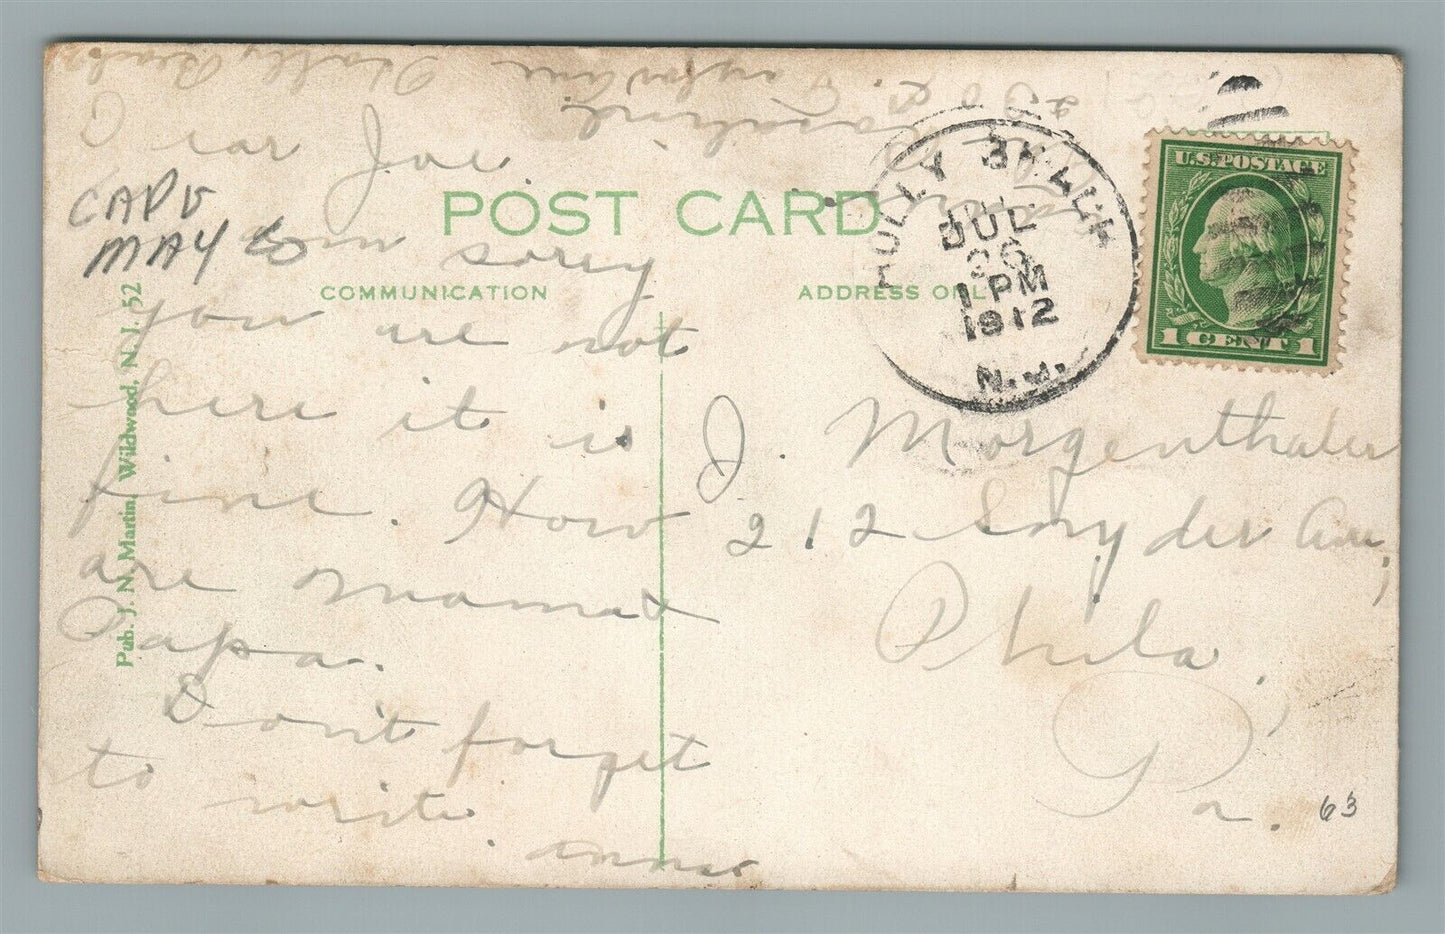 Dear Joe
CAPE
MAY
POST CARD
COMMUNICATION
ADDRESS ONLY
am sorry
you are not
here it is
fine. How
are mama &
Papa.
Don't forget
to write.
Anna
Pub. J. N. Martin, Wildwood, N. J. 52
HOLLY BEACH
JUL
26
1 PM
1912
N.J.
U.S. POSTAGE
1 CENT 1
J. Morgenthaler
212 Snyder Ave,
Phila,
Pa.
63
Holly Beach